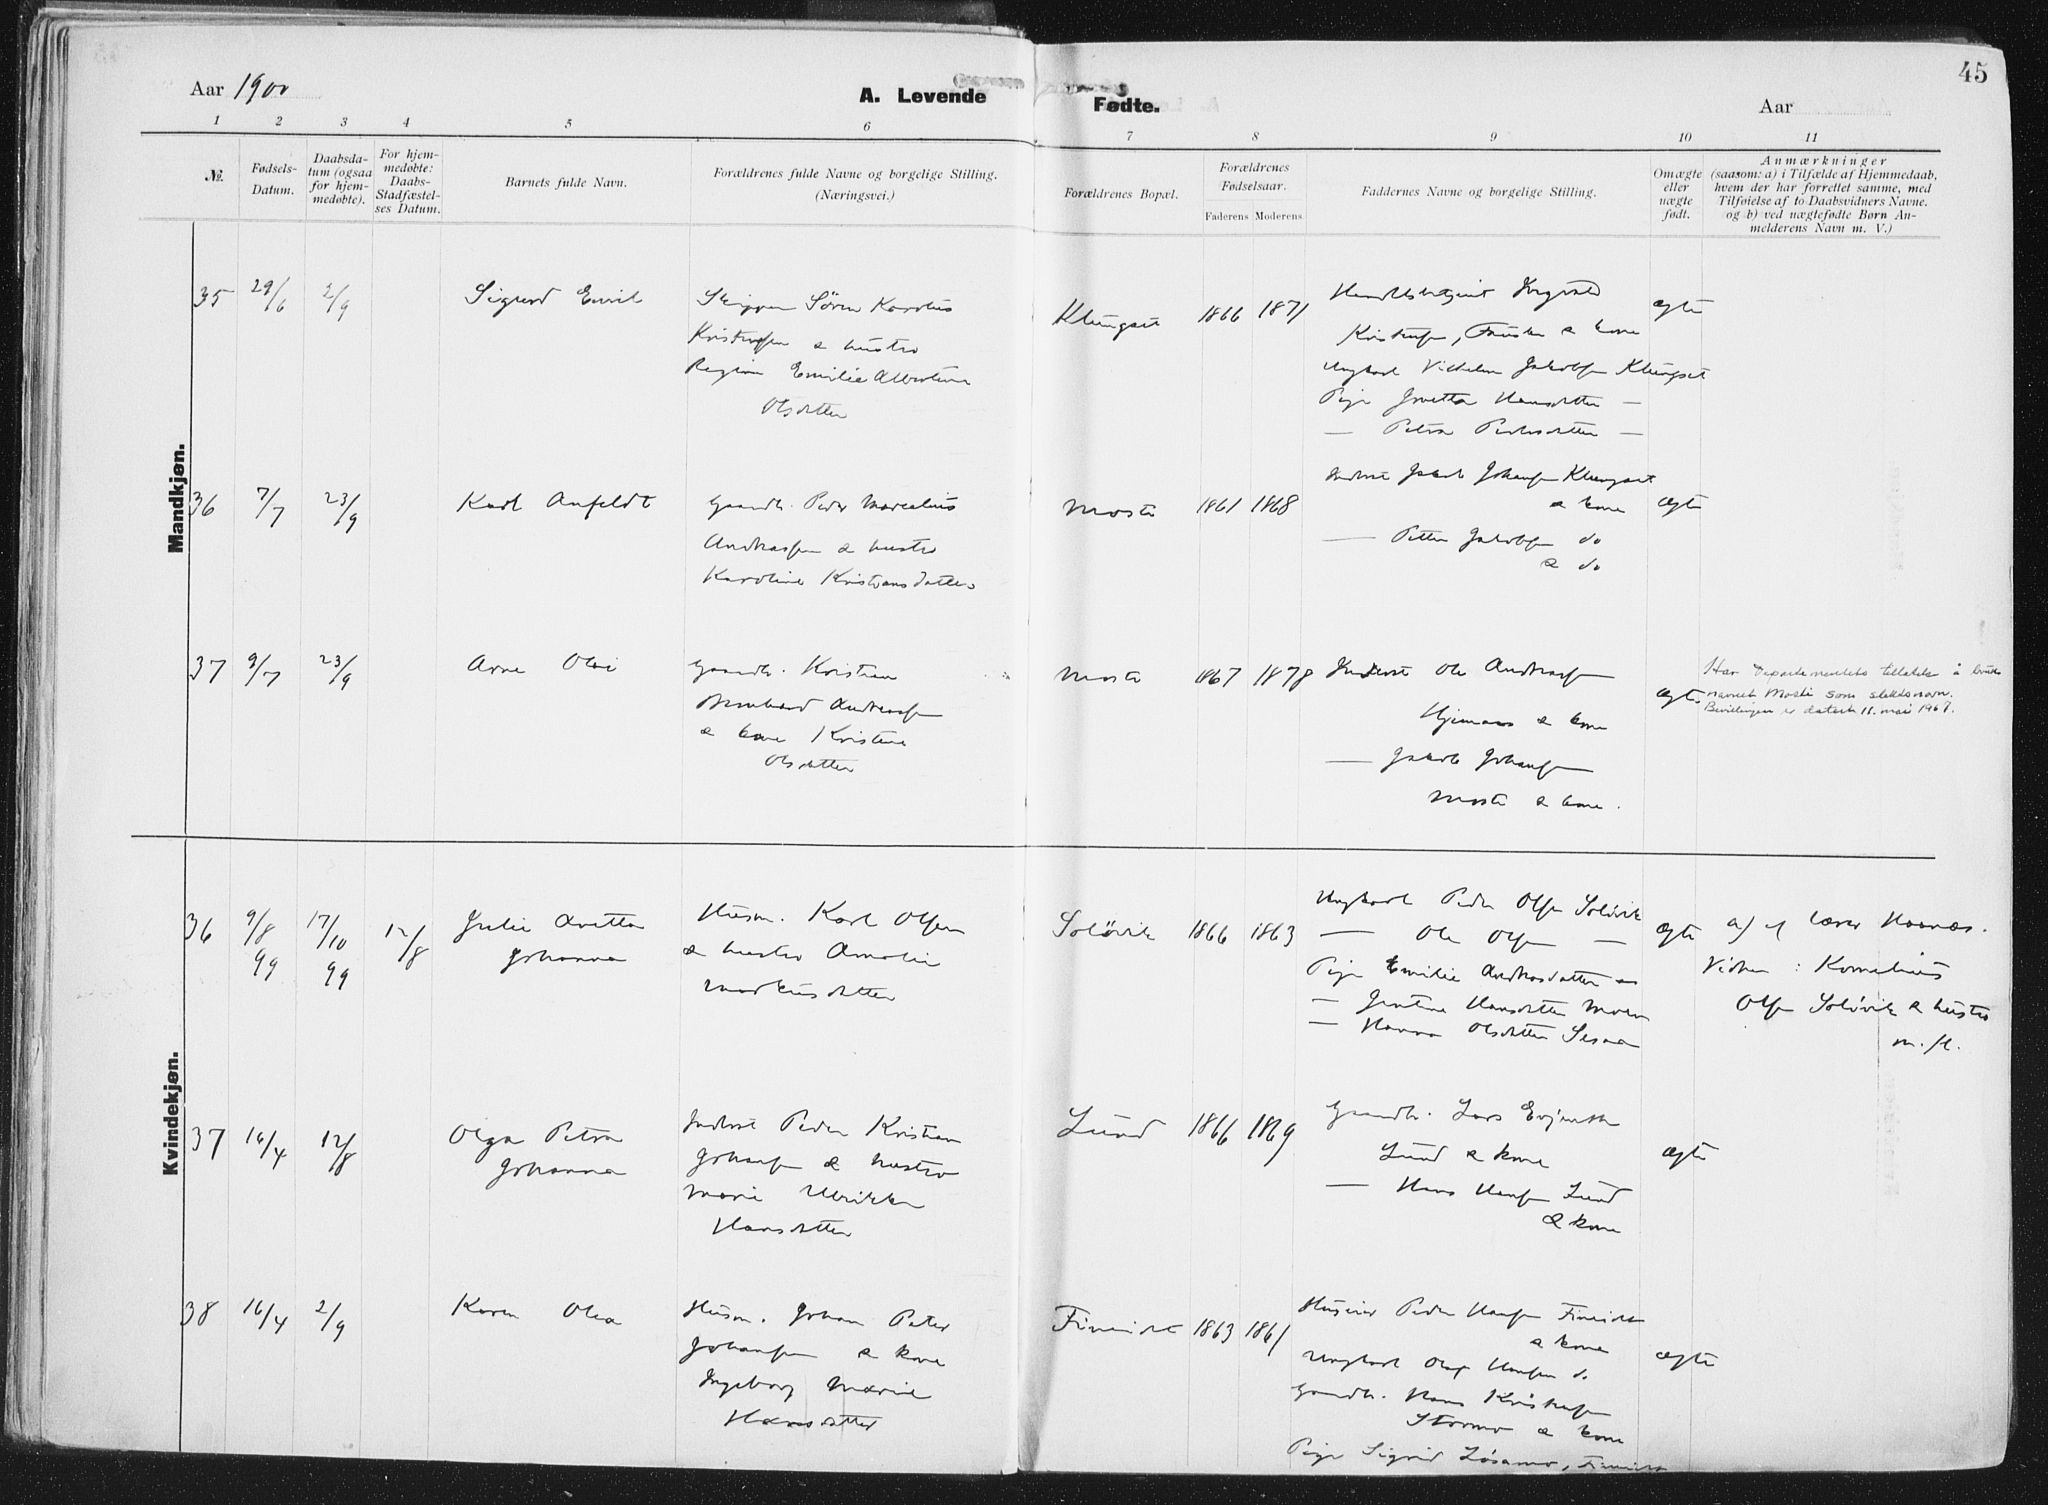 45
Aar 1900
A. Levende Fødte.
Aar
1 2 3 4 5 6 7 8 9 10 11
№.
Fødsels-
Datum.
Daabsda-
tum (ogsaa
for hjem-
medøbte).
For hjem-
medøbte:
Daabs-
Stadfæstel-
ses Datum.
Barnets fulde Navn.
Forældrenes fulde Navne og borgelige Stilling.
(Næringsvei.)
Forældrenes Bopæl.
Forældrenes
Fødselsaar.
Faderens Moderens
Faddernes Navne og borgelige Stilling.
Omægte
eller
uægte
født.
Anmærkninger
(saasom: a) i Tilfælde af Hjemmedaab,
hvem der har forrettet samme, med
Tilføielse af to Daabsvidners Navne.
og b) ved uægtefødte Børn An-
melderens Navn m. V.)
Mandkjøn.
35 29/6 2/9 Sigurd Emil
Skipper Søren Karolius
Kristofsen & hustro
Emilie Albertine
Olsdatter
Klungset 1866 1871
Kristofsen, Fauske & kone
Ungkarl Vilhelm Jakobsen Klungset
Pige Hansdatter —
— Petra Pedersdatter —
ægte
36 7/7 23/9 Karl Anfeldt
Gaardb. Peder Marcelius
Andreassen & hustro
Karoline Kristiansdatter
Moste 1861 1868
Inderst Jakob Johansen Klungset
& kone
— Petter Jakobsen do
& do
ægte
37 9/7 23/9 Arne Olai
Gaardb. Kristian
Andreassen
& kone Kristine
Olsdatter
Moste 1867 1878
Inderst Ole Andreassen
& kone
— Jakob Johansen
Moste & kone.
ægte
Har Departementets tillatelse å bruke
navnet Moste som slektsnavn.
Bevillingen er datert 11. mai 1967.
Kvindekjøn.
36 9/8 99 17/10 99 12/8 Julie Anetta
Johanna
Husm. Karl Olsen
& hustro Amalie
Markusdatter
Soløvik 1866 1863
Ungkarl Peder Olsen Soløvik
— Ole Olsen —
Pige Emilie Andreasdatter
— Jentine Hansdatter Moen
— Hanna Olsdatter
ægte
a) af lærer
Vidner: Kornelius
Olsen Soløvik & hustro
m. fl.
37 16/4 12/8 Olga Petra
Johanna
Inderst Peder Kristian
Johansen & hustro
Marie Ulrikke
Hansdatter
Lund 1866 1869
Gaardb. Lars Evjenth
Lund & kone
— Hans Hansen Lund
& kone
ægte
38 16/4 2/9 Karen Olea
Husm. Johan Peter
Johansen & kone
Ingeborg Marie
Hansdatter
Fineidet 1863 1861
Peder Hansen Fineidet
& kone
Ungkarl Olaf Hansen do
Gaardb. Hans Kristofsen
Stormo & kone
Pige Sigrid Løsamo, Fineidet
ægte